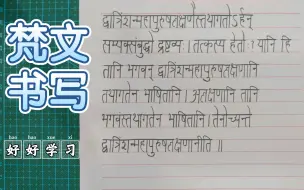 梵文
书写
hǎo hǎo xué xí
好好学习
द्वात्रिंशन्महापुरुषलक्षणैस्तथागतोऽर्हन्
सम्यक्संबुद्धो द्रष्टव्यः । तत्कस्य हेतोः ? यानि हि
तानि भगवन् द्वात्रिंशन्महापुरुषलक्षणानि
तथागतेन भाषितानि । अलक्षणानि तानि
भगवंस्तथागतेन भाषितानि । तेनोच्यन्ते
द्वात्रिंशन्महापुरुषलक्षणानीति ॥